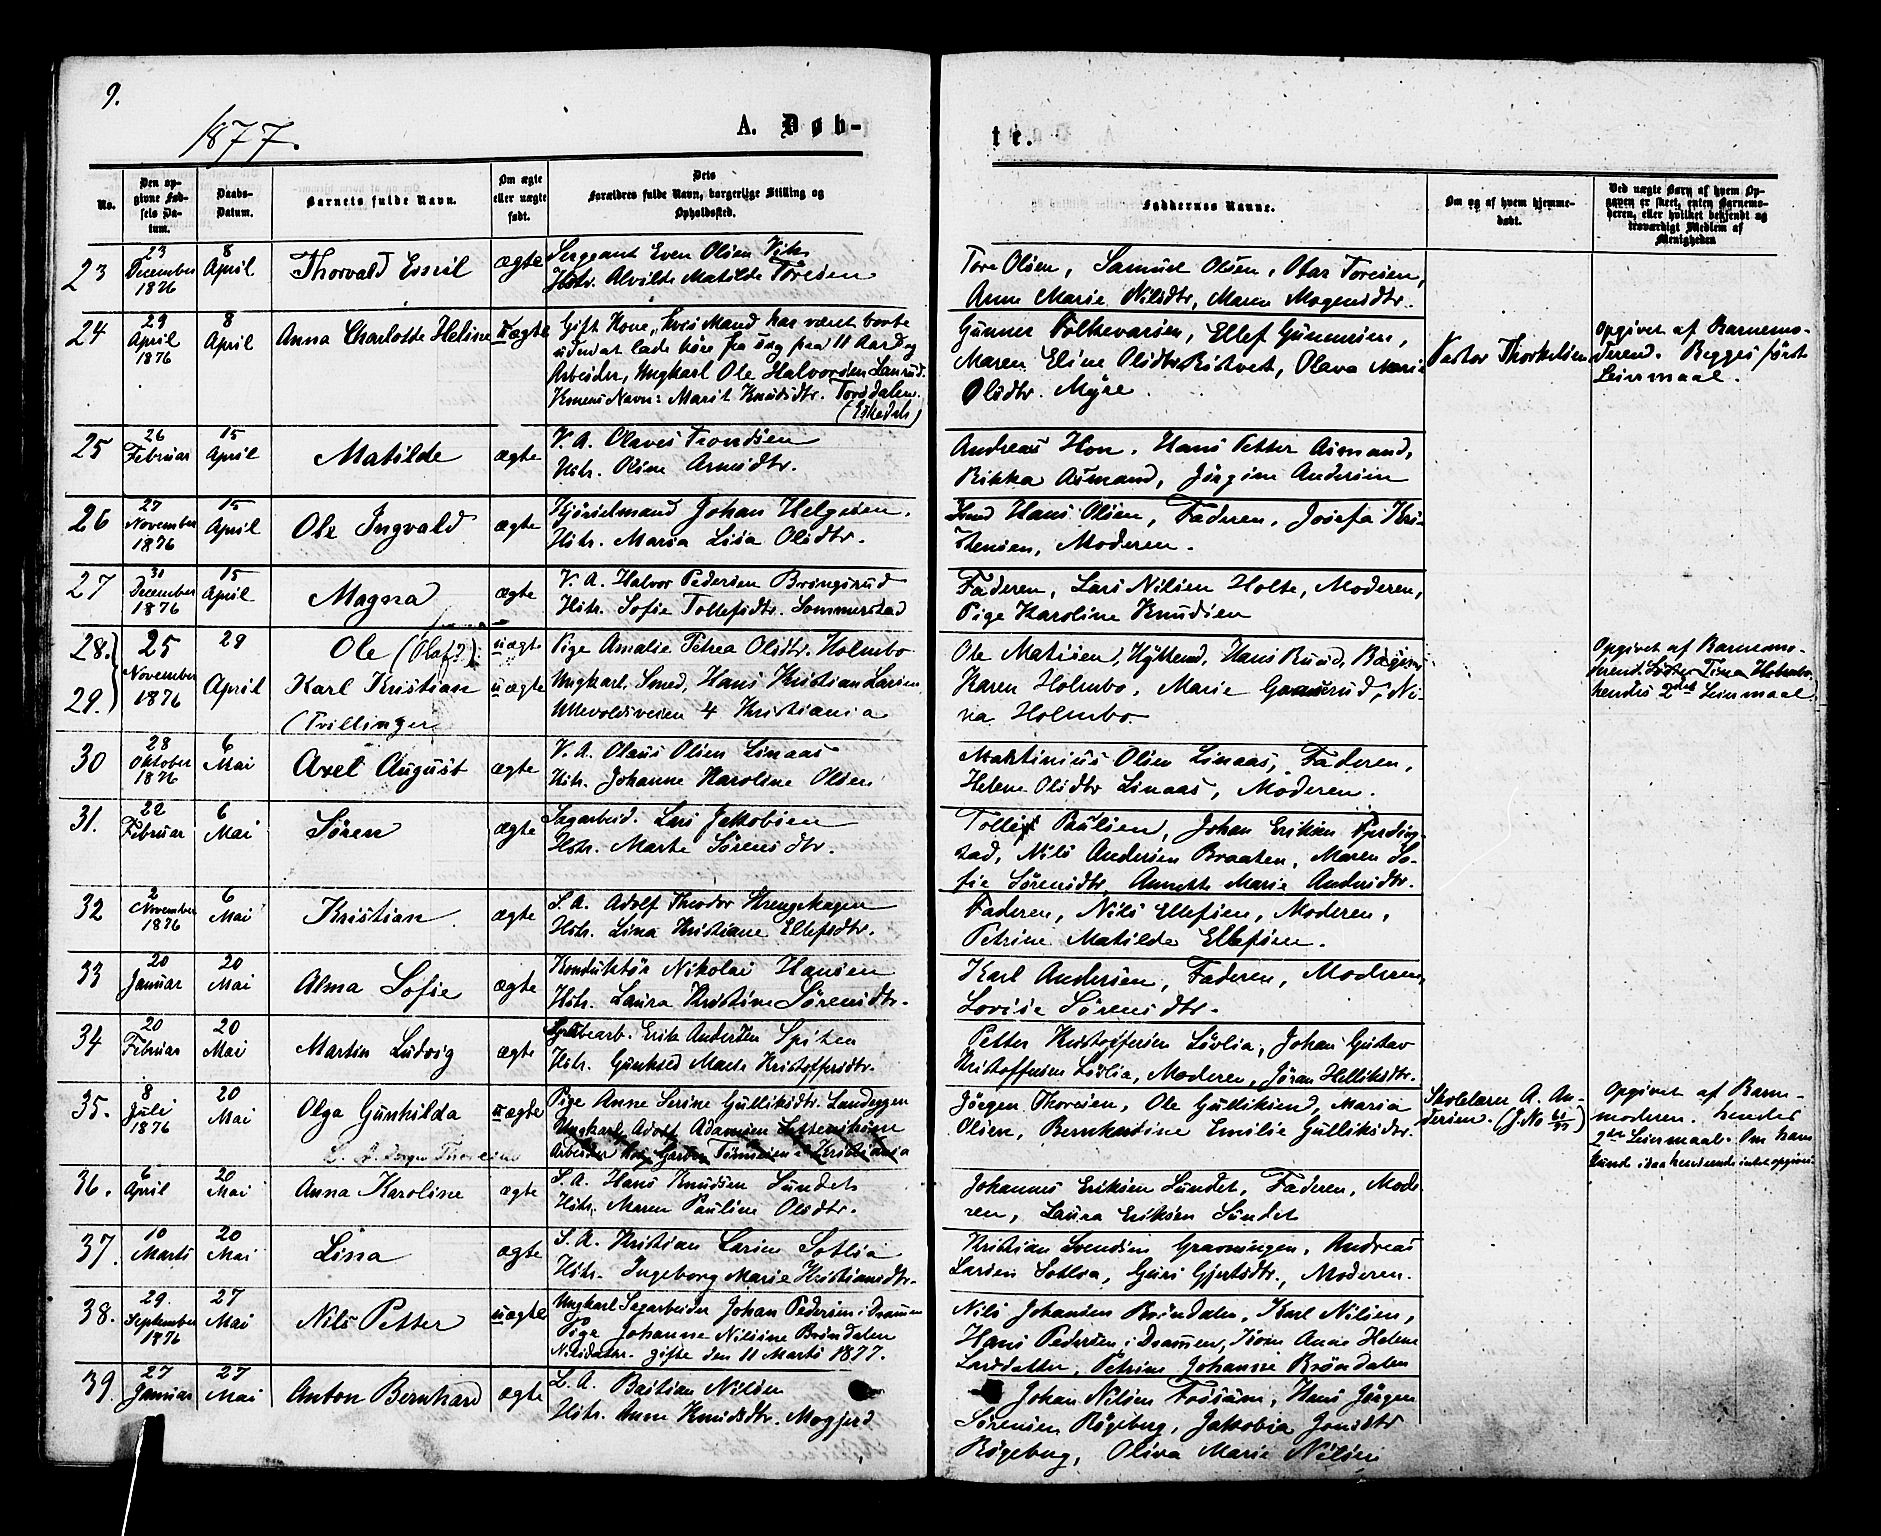 9.
1877.
A. Døb-
te.
No.
Den op-
givne Fød-
sels Da-
tum.
Daabs-
Datum.
Barnets fulde Navn.
Om ægte
eller uægte
født.
Dets
Forældres fulde Navn, borgerlige Stilling og
Opholdssted.
Faddernes Navne.
Om og af hvem hjemme-
døbt.
Ved uægte Børn af hvem Op-
gaven er skeet, enten Barnemo-
deren, eller hvilket bekjendt og
troværdigt Medlem af
Menigheden
23
23 December 1876
8 April
Thorvald Essil
ægte
Sergeant Even Olsen Vik
Hstr. Alvilde Matilde Toresen
Tore Olsen, Samuel Olsen, Olar Toresen,
Anne Marie Nilsdtr, Maren Mogensdtr.
24
29 April 1876
8 April
Anna Charlotte Heline
uægte
Gift Kone, hvis Mand har været borte
uden at lade høre fra sig paa 11 Aar og
Arbeider, Ungkarl Ole Halvorsen Lanrud.
Konens Navn: Marit Knudsdtr. Torsdalen
(Eskedals)
Gunner Folkevarsen, Ellef Gunnersen,
Maren Eline Olsdtr Ristvet, Olava Marie
Olsdtr. Myre.
Pastor Thorkelsen
Opgivet af Barnemo-
deren. Begges første
Leiermaal.
25
26 Februar
15 April
Matilde
ægte
V. A. Olaves Trondsen
Hstr. Oline Arnesdtr.
Andreas Hon, Hans Petter Asmand,
Rikka Asmand, Jørgine Andersen
26
27 November 1876
15 April
Ole Ingvald
ægte
Kjørselmand Johan Helgesen.
Hstr. Maria Lisa Olsdtr.
Smed Hans Olsen, Faderen, Josefa Kri-
stensen, Moderen.
27
31 December 1876
15 April
Magna
ægte
V. A. Halvor Pedersen Bringsrud
Hstr. Sofie Tollefsdtr. Sommerstad
Faderen, Lars Nilsen Holte, Moderen,
Pige Karoline Knudsen
28.
29.
25 November 1876
29 April
Ole (Olaf?)
Karl Kristian
(Tvillinger
uægte
uægte
Pige Amalie Petrea Olsdtr. Holmbo
Ungkarl. Smed, Hans Kristian Larsen
Ullevoldsveien 4 Kristiania
Ole Matisen, Hans Ruud,
Karen Holmbo, Marie Gomsrud, Ni-
na Holmbo
Opgivet af Barnemo-
derens Søster Tina Holmbo.
hendes 2det Leiermaal
30
28 Oktober 1876
6 Mai
Axel August
ægte
V. A. Olaus Olsen Linaas
Hstr. Johanne Karoline Olsen
Martinius Olsen Linaas, Faderen,
Helene Olsdtr Linaas, Moderen.
31.
22 Februar
6 Mai
Sören
ægte
Sagarbeid. Lars Jakobsen
Hstr. Marte Sørensdtr.
Tollef Paulsen, Johan Eriksen
stad, Nils Andersen Braaten, Maren So-
fie Sørensdtr, Annette Marie Andersdtr.
32
2 November 1876
6 Mai
Kristian
ægte
S. A. Adolf Theodor Strengehagen
Hstr. Lina Kristiane Ellefsdtr.
Faderen, Nils Ellefsen, Moderen,
Petrine Matilde Ellefsen.
33
20 Januar
20 Mai
Alma Sofie
ægte
Konduktør Nikolai Hansen
Hstr. Laura Kristine Sørensdtr.
Karl Andersen, Faderen, Moderen,
Lovise Sørensdtr.
34
20 Februar
20 Mai
Martin Ludvig
ægte
Grubearb. Erik Andersen Spiten
Hstr. Gunhild Marie Kristoffersdtr.
Petter Kristoffersen Lövlia, Johan Gustav
Kristoffersen Lövlia, Moderen, Jöran Helliksdtr.
35.
8 Juli 1876
20 Mai
Olga Gunhilda
uægte
Pige Anne Serine Gulliksdtr. Landsggen
Ungkarl Adolf Adamsen
Arbeider Kristiania
L. A. Jørgen Thoresen
Jörgen Thoresen, Ole Gulliksen, Maria
Olsen, Bernhardine Emilie Gulliksdtr.
Skolelærer A. An-
dersen. (J. No
Opgivet af Barne-
moderen. hendes
2det Leiermaal. Om ham
kunde intet opgives.
36.
6 April
20 Mai
Anna Karoline
ægte
S. A. Hans Knudsen Sundet
Hstr. Maren Pauline Olsdtr.
Johannes Eriksen Sundet, Faderen, Mode-
ren, Laura Eriksen Sundet
37.
10 Marts
20 Mai
Lina
ægte
S. A. Kristian Larsen Sotlia
Hstr. Ingeborg Marie Kristiansdtr.
Kristian Svendsen Gravningen, Andreas
Larsen Sotlia, Guri Gjertsdtr., Moderen.
38.
29. September 1876
27 Mai
Nils Petter
uægte
Ungkarl Sagarbeider Johan Pedersen i Drammen
Pige Johanne Nilsine Bröndalen
Nilsdatter. gifte den 11 Marts 1877.
Nils Johansen Bröndalen, Karl Nilsen,
Hans Pedersen i Drammen, Kone Anne Helene
Larsdatter, Petrine Johannes Bröndalen
39.
27 Januar
27 Mai
Anton Bernhard
ægte
L. A. Bastian Nilsen
Hstr. Anne Knudsdtr. Mogjerd
Johan Nilsen Fossum, Hans Jörgen
Sörensen Rögeberg, Jakobia Jonsdtr
Rögeberg, Oliva Marie Nilsen